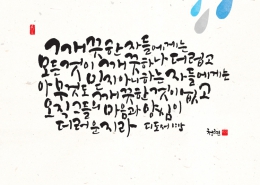 깨끗한 자들에게는
모든 것이 깨끗하나 더럽고
믿지 아니하는 자들에게는
아무것도 깨끗한 것이 없고
오직 그들의 마음과 양심이
더러운지라 디도서 1:15